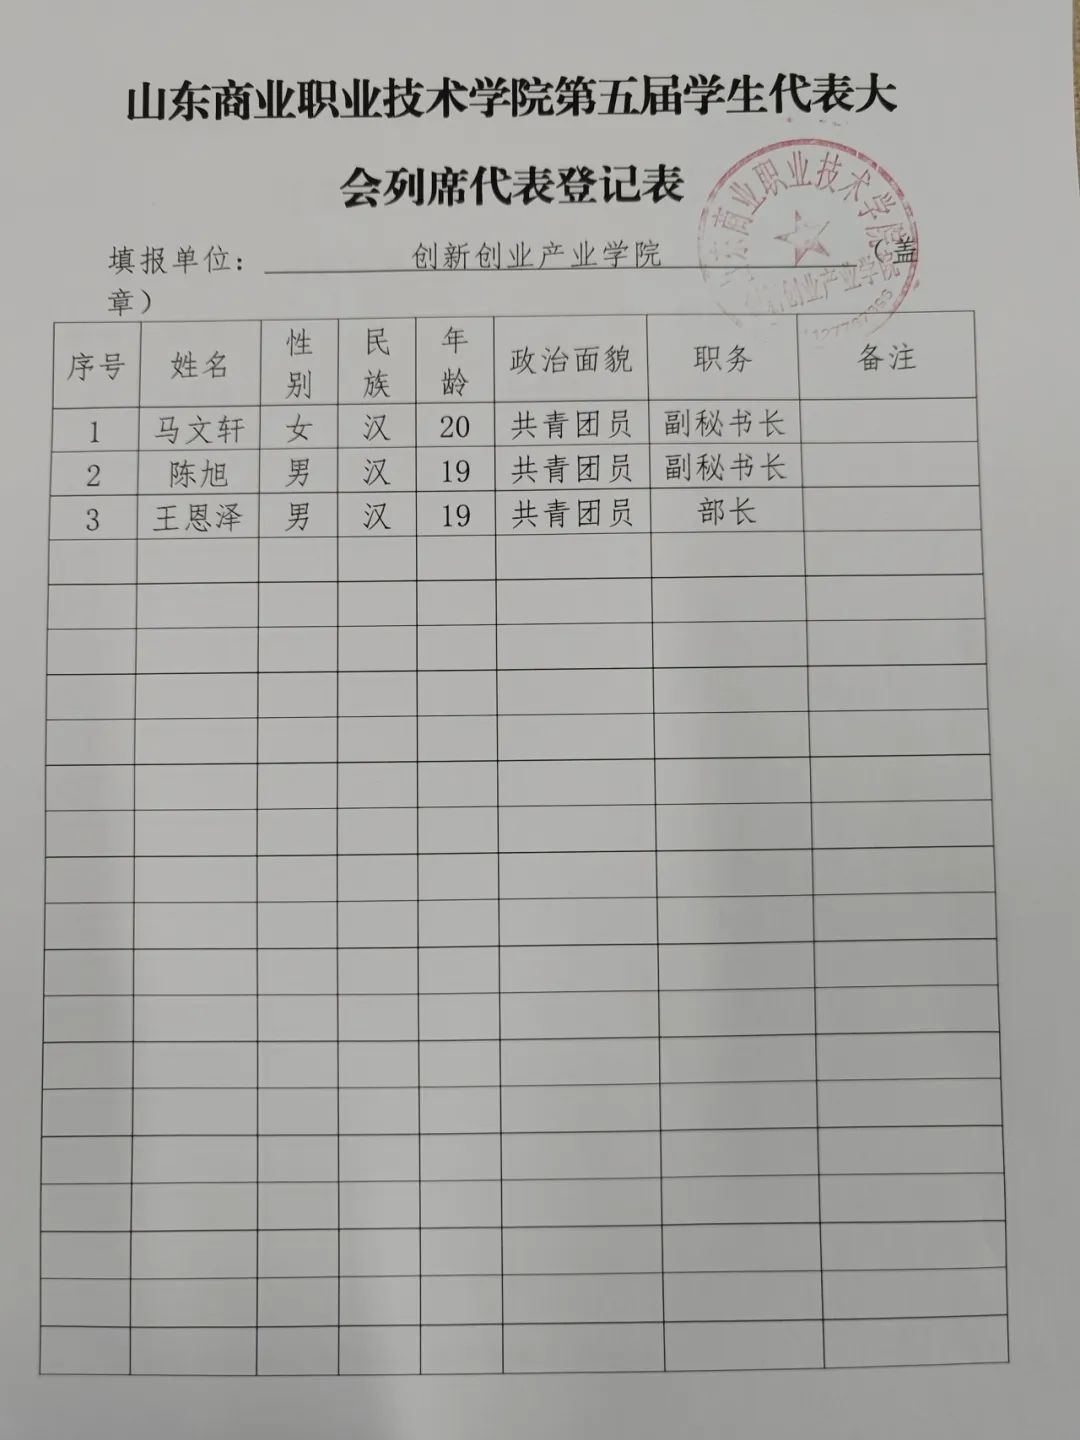 山东商业职业技术学院第五届学生代表大
会列席代表登记表
填报单位： 创新创业产业学院 （盖
章）
山东商业职业技术学院
创新创业产业学院
序号 姓名 性别 民族 年龄 政治面貌 职务 备注
1 马文轩 女 汉 20 共青团员 副秘书长
2 陈旭 男 汉 19 共青团员 副秘书长
3 王恩泽 男 汉 19 共青团员 部长